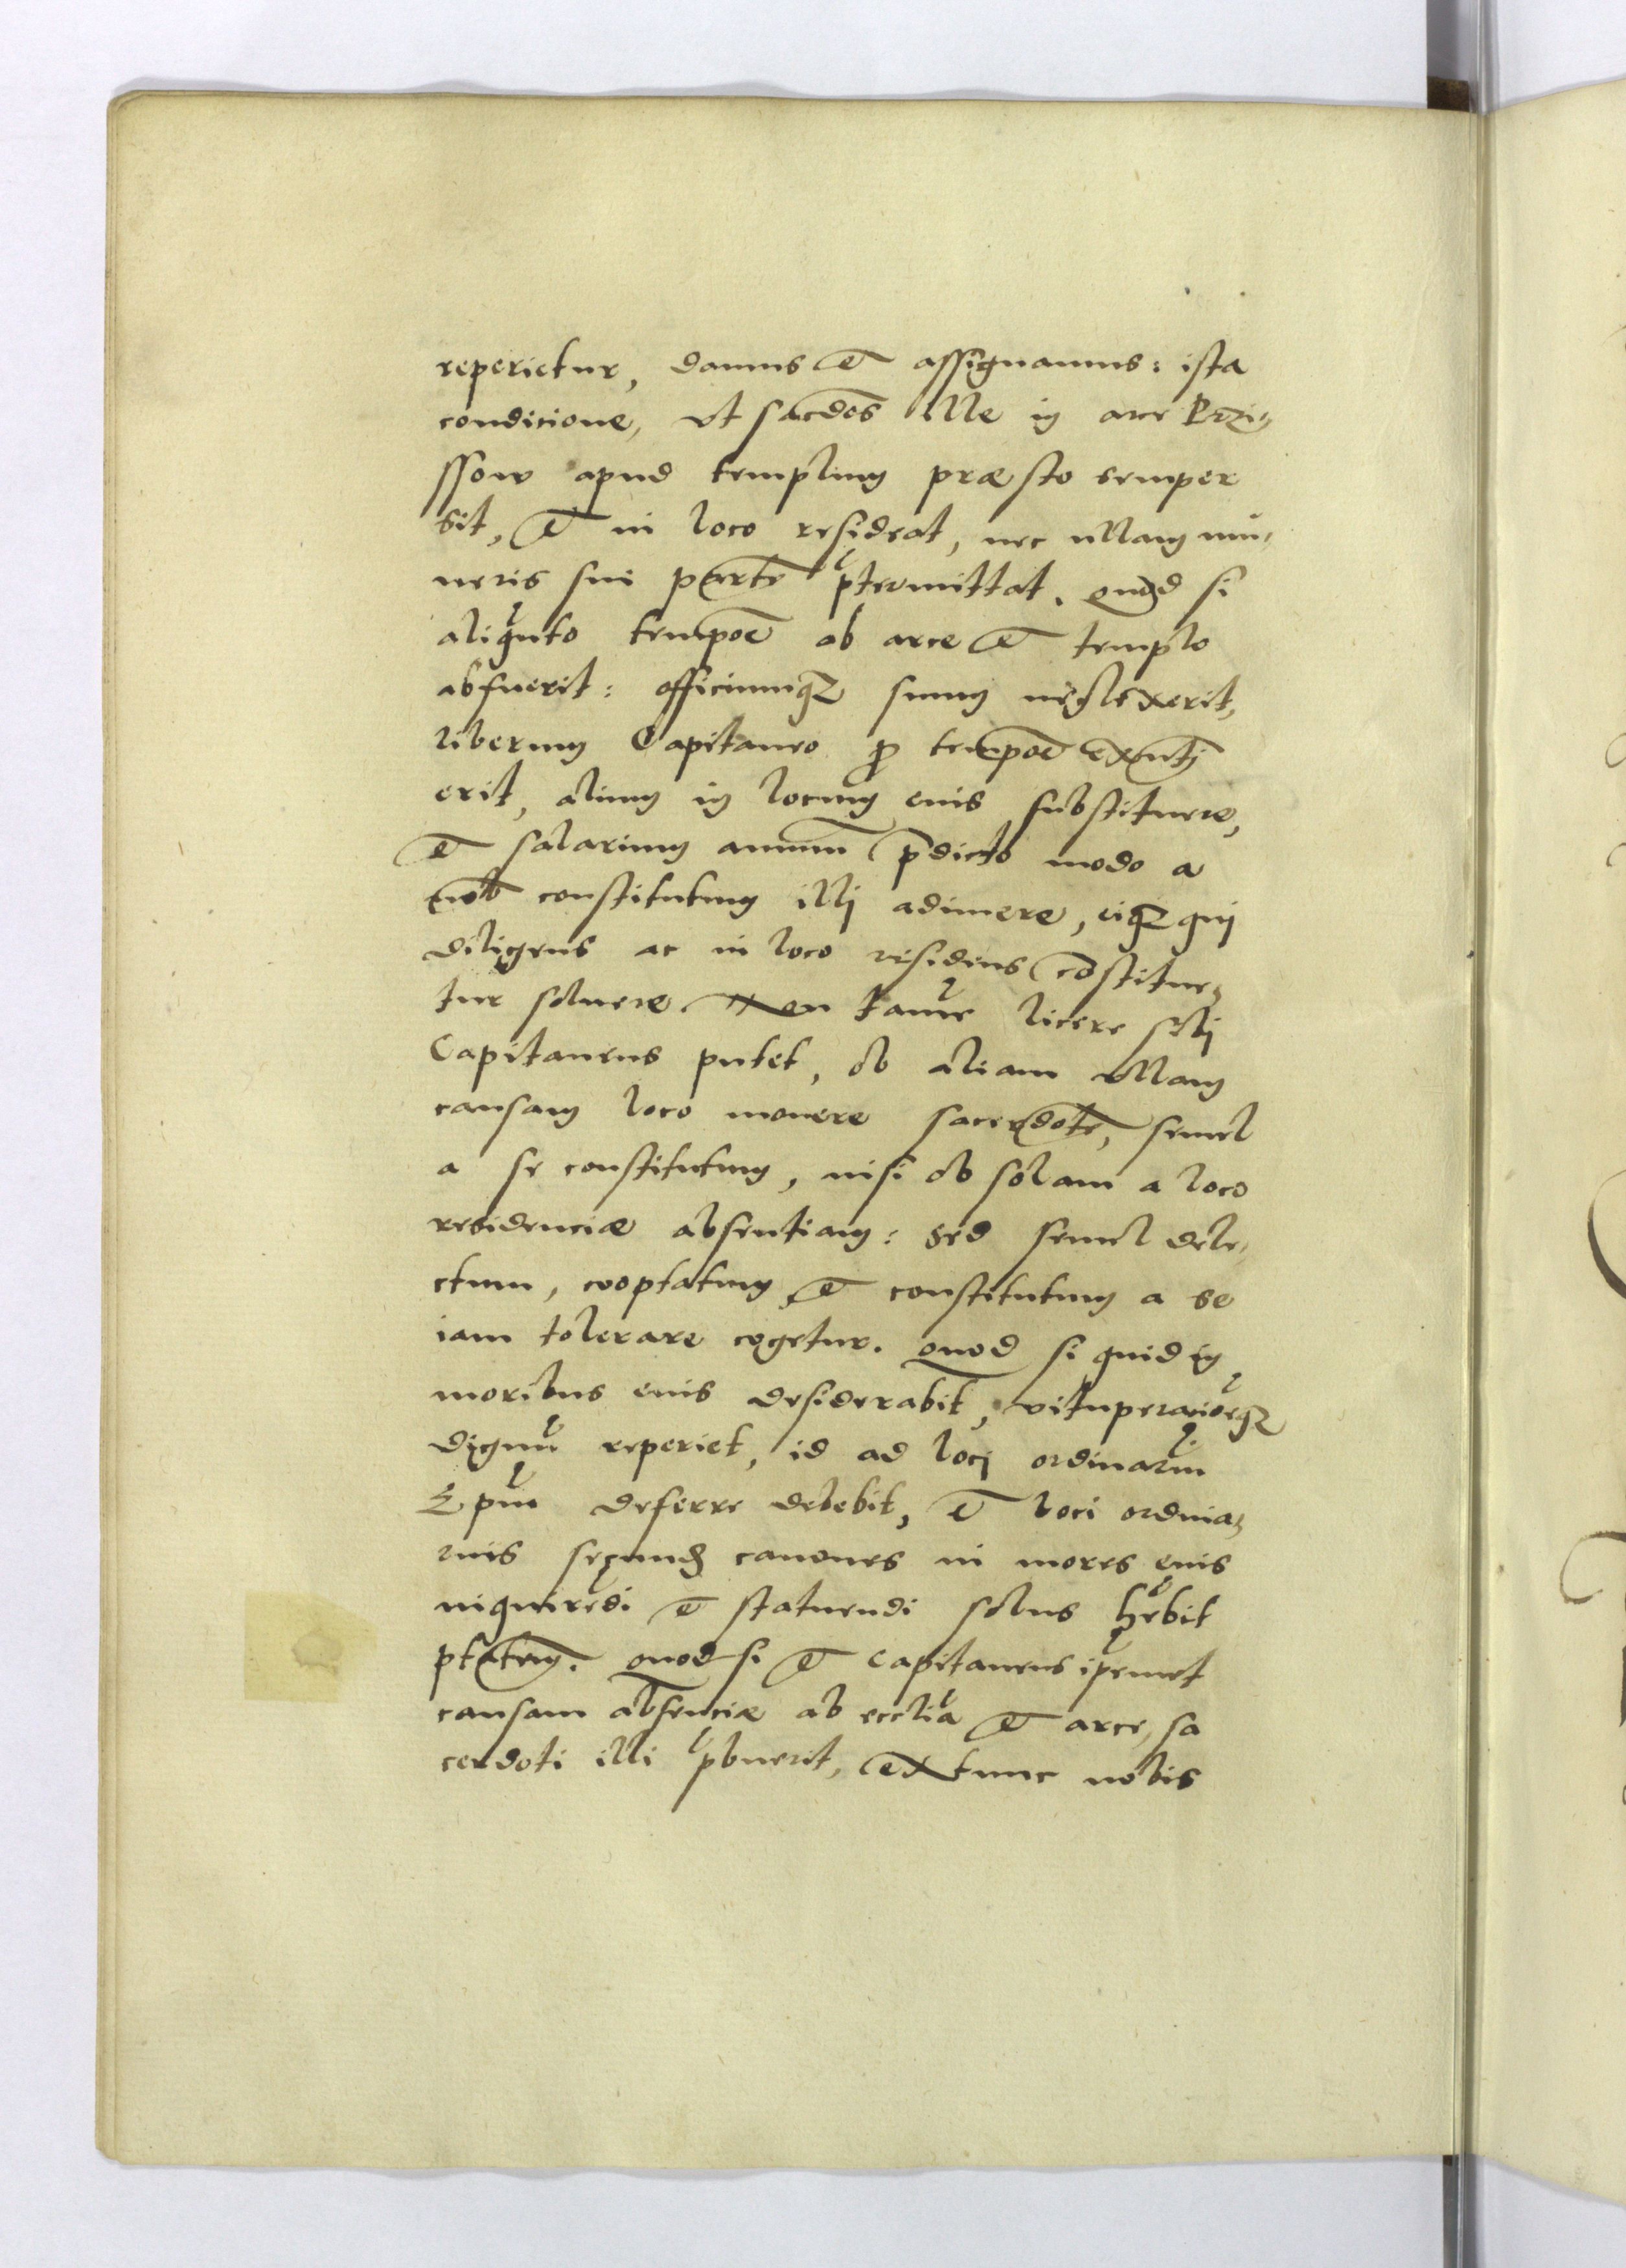 reperietur, damus et assignamus: ista
condicione, vt sacdos ille in arce Rzi-
ssow apud templum præsto semper
sit, et in loco resideat, nec vllam mu-
neris sui parte ptermittat. quod si
aliqnto tempoe ab arce et templo
abfuerit: officiumq suum neglexerit,
liberum Capitaneo p tempoe exnti
erit, alium in locum euis substituere,
et salarium annuum pdicto modo a
nob constitutum illi adimere, eiq qui
diligens ac in loco residens costitue-
tur soluere. Non tame licere sibi
Capitaneus putet, ob aliam vllam
causam loco mouere sacerdote, semel
a se constitutum, nisi ob solam a loco
residenciæ absentiam: sed semel dele-
ctum, cooptatum et constitutum a se
iam tolerare cogetur. quod si quid in
moribus euis desiderabit, vituperacioeq
dignu reperiet, id ad loci ordinarium
Epum deferre debebit, et loci ordina-
rius secund canones in mores euis
inquiredi et statuendi solus hebit
ptatem. quod si et Capitaneus ipemet
causam absenciæ ab ecclia et arce, sa
cerdoti illi pbuerit, ex tunc nobis